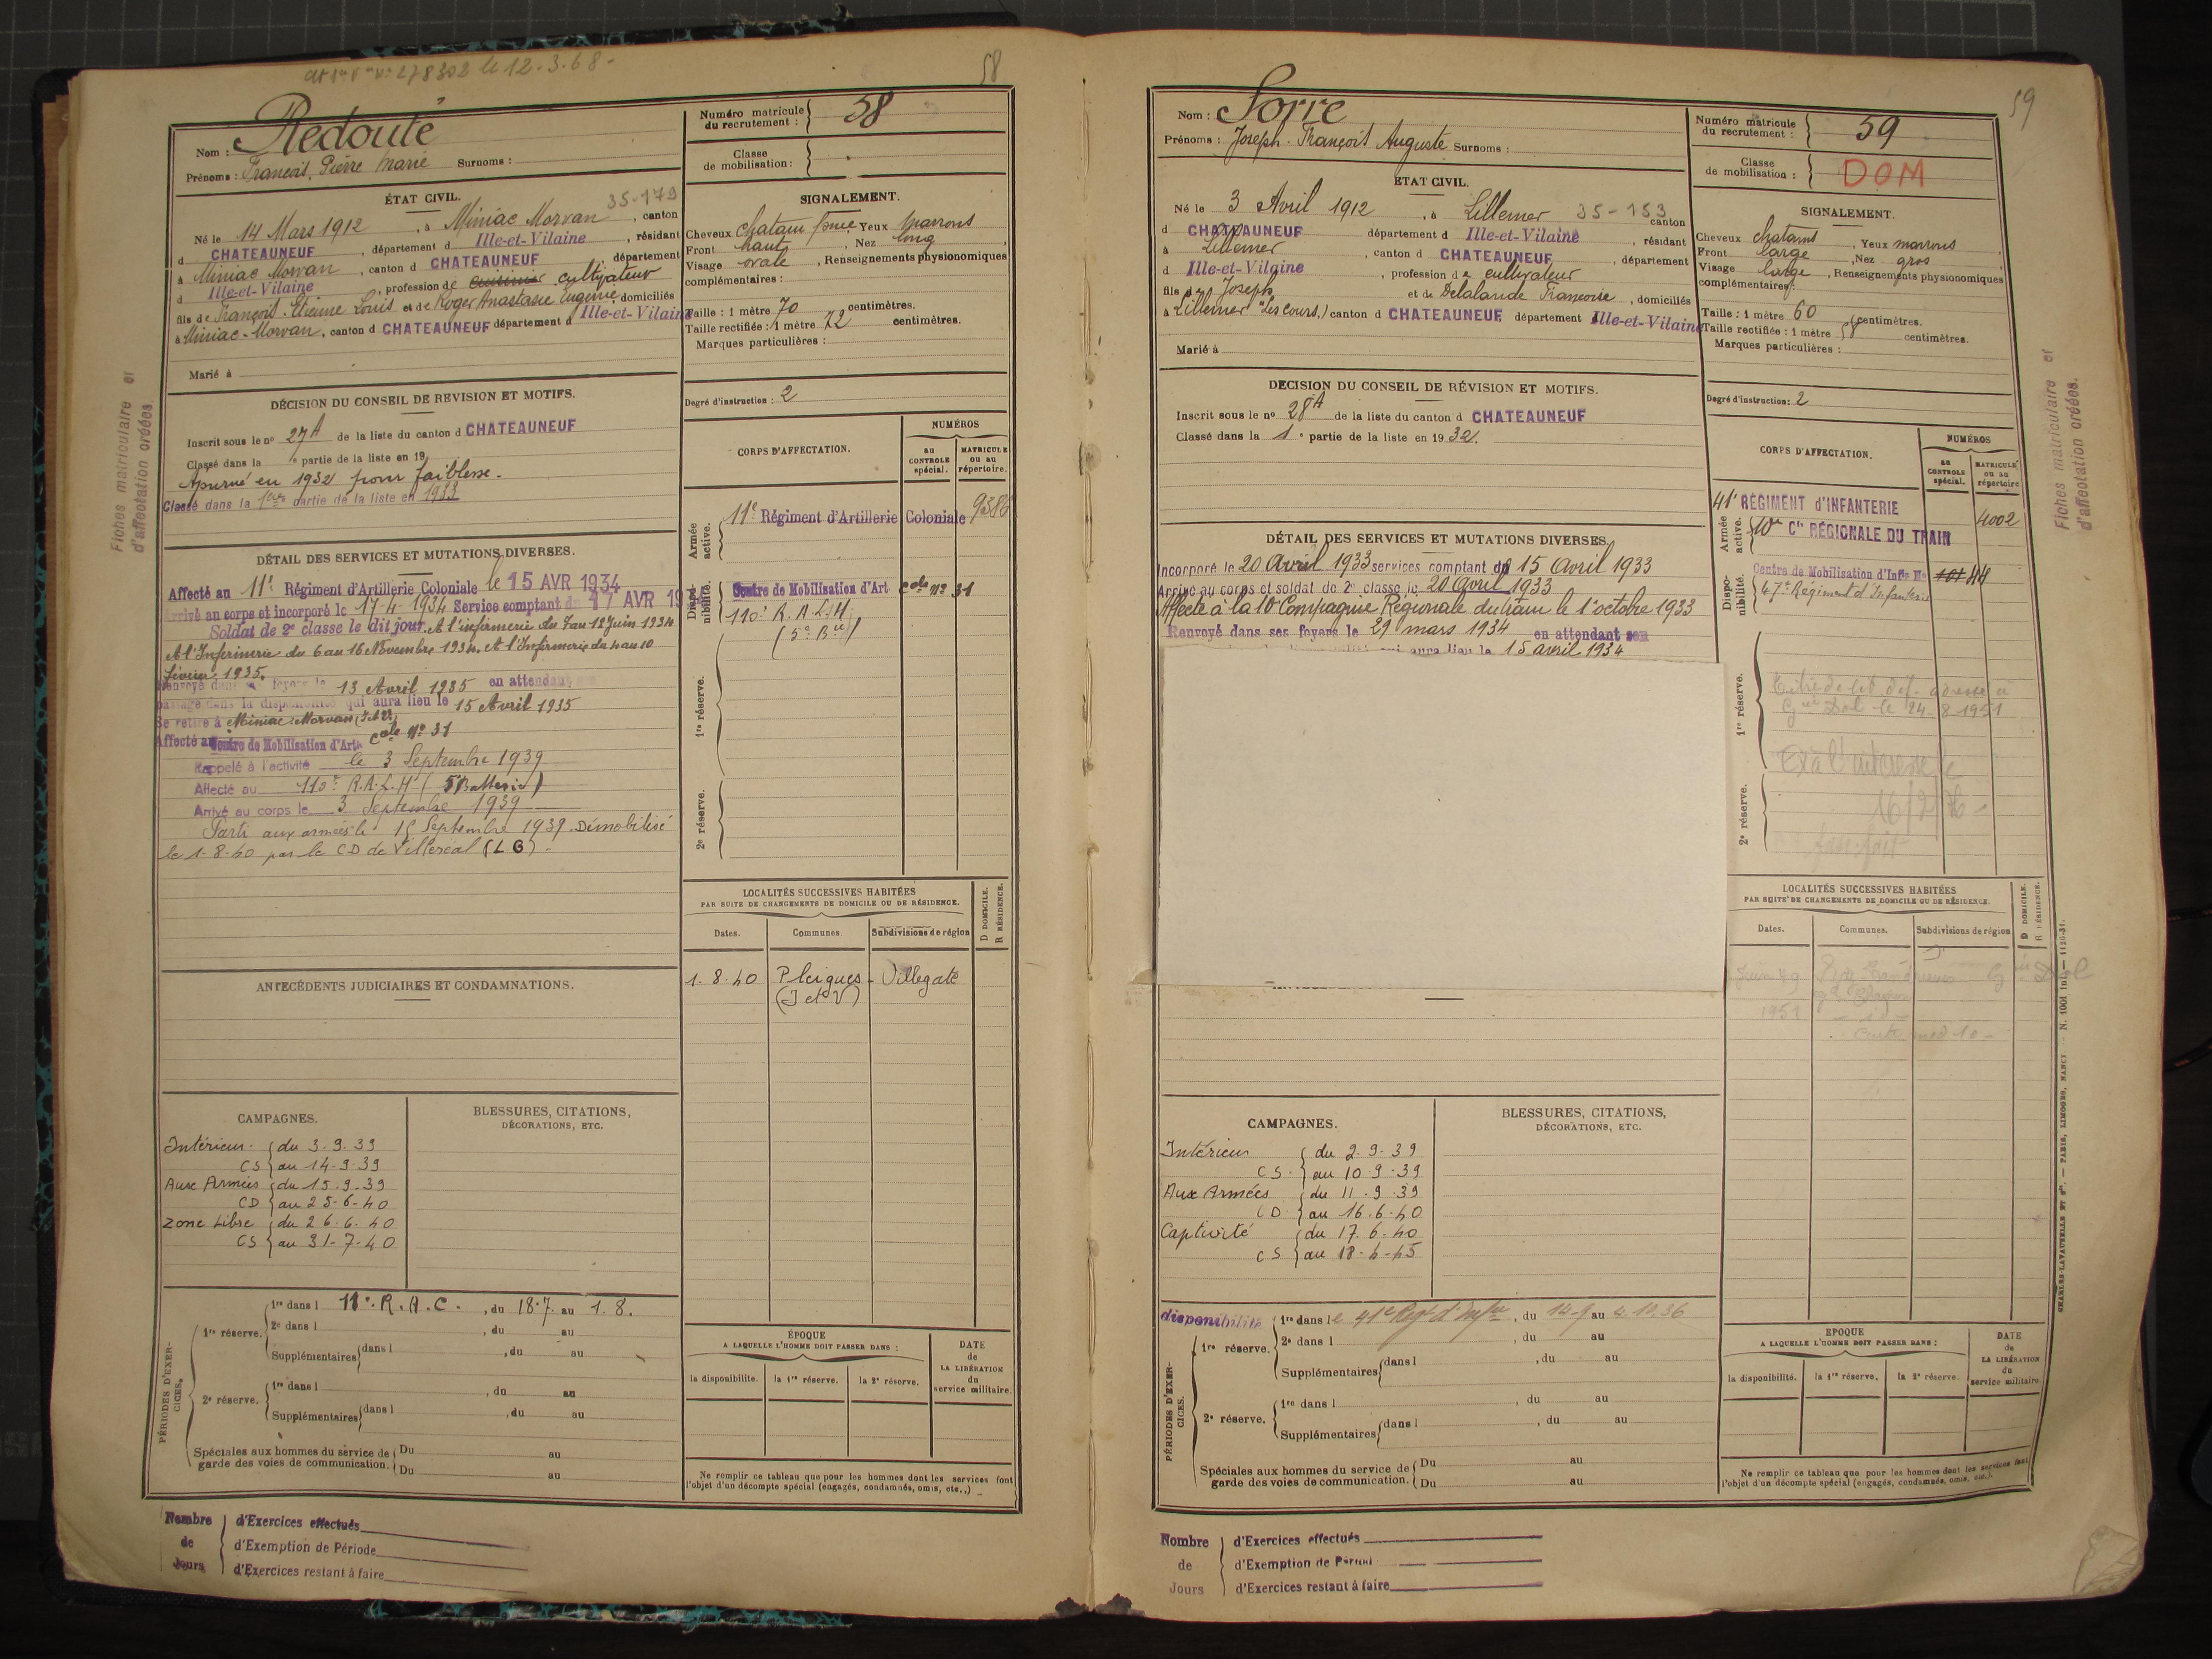 58
Nom : Redouté
Prénoms : François, Pierre Marie Surnoms :
Numéro matricule du recrutement : 58
Classe de mobilisation :
ÉTAT CIVIL.
35-179
Né le 14 Mars 1912, à Miniac Morvan, canton
d CHATEAUNEUF, département d Ille-et-Vilaine, résidant
à Miniac Morvan, canton d CHATEAUNEUF, département
d Ille-et-Vilaine, profession de cultivateur
fils de François Etienne Louis et de Roger Anastasie Eugénie, domiciliés
à Miniac-Morvan, canton d CHATEAUNEUF département d Ille-et-Vilaine
Marié à
SIGNALEMENT.
Cheveux chatain foncé Yeux marrons
Front haut, Nez long,
Visage ovale, Renseignements physionomiques
complémentaires :
Taille : 1 mètre 70 centimètres.
Taille rectifiée : 1 mètre 72 centimètres.
Marques particulières :
Degré d'instruction : 2
Fiches matriculaire et
d'affectation créées
DÉCISION DU CONSEIL DE REVISION ET MOTIFS.
Inscrit sous le no 27A de la liste du canton d CHATEAUNEUF
Classé dans la e partie de la liste en 19
Ajourné en 1932 pour faiblesse.
Classé dans la 1ère partie de la liste en 1933
DÉTAIL DES SERVICES ET MUTATIONS DIVERSES.
Affecté au 11e Régiment d'Artillerie Coloniale le 15 AVR 1934
Arrivé au corps et incorporé le 17-4-1934 Service comptant du 17 AVR 19
Soldat de 2e classe le dit jour. A l'infirmerie du 7 au 12 Juin 1934
A l'Infirmerie du 6 au 16 Novembre 1934. A l'Infirmerie du 4 au 10
février 1935.
Renvoyé dans ses foyers le 13 Avril 1935 en attendant son
passage dans la disponibilité qui aura lieu le 15 Avril 1935
Se retire à Miniac-Morvan (I et V)
Affecté au Centre de Mobilisation d'Art. Cole No 31
Rappelé à l'activité le 3 Septembre 1939
Affecté au 110e R.A.L.H (5e Batterie)
Arrivé au corps le 3 Septembre 1939
Parti aux armées le 15 Septembre 1939. Démobilisé
le 1-8-40 par le CD de Villeréal (LG).
CORPS D'AFFECTATION.
NUMÉROS
au CONTROLE spécial.
MATRICULE ou au répertoire.
Armée active.
11e Régiment d'Artillerie Coloniale 9386
Disponibilité.
Centre de Mobilisation d'Art Cole No 31
110e R.A.L.H
(5e Bie)
1re réserve.
2e réserve.
LOCALITÉS SUCCESSIVES HABITÉES
PAR SUITE DE CHANGEMENTS DE DOMICILE OU DE RÉSIDENCE.
Dates. Communes. Subdivisions de région
D DOMICILE.
R RÉSIDENCE.
1-8-40 Pleigues - Villegate
(I et V)
ANTÉCÉDENTS JUDICIAIRES ET CONDAMNATIONS.
CAMPAGNES.
Intérieur du 3-9-39
CS au 14-9-39
Aux Armées du 15-9-39
CD au 25-6-40
Zone Libre du 26-6-40
CS au 31-7-40
BLESSURES, CITATIONS,
DÉCORATIONS, ETC.
PÉRIODES D'EXERCICES.
1re réserve.
1re dans l 11e R.A.C., du 18-7 au 1-8.
2e dans l , du au
Supplémentaires dans l , du au
2e réserve.
1re dans l , du au
Supplémentaires dans l , du au
Spéciales aux hommes du service de garde des voies de communication.
Du au
Du au
ÉPOQUE
A LAQUELLE L'HOMME DOIT PASSER DANS :
la disponibilite. la 1re réserve. la 2e réserve.
DATE de LA LIBÉRATION du service militaire.
Ne remplir ce tableau que pour les hommes dont les services font
l'objet d'un décompte spécial (engagés, condamnés, omis, etc.,)
Nombre de Jours
d'Exercices effectués
d'Exemption de Période
d'Exercices restant à faire
59
Nom : Sorre
Prénoms : Joseph François Auguste Surnoms :
Numéro matricule du recrutement : 59
Classe de mobilisation : DOM
ETAT CIVIL.
Né le 3 Avril 1912, à Lillemer 35-153 canton
d CHATEAUNEUF département d Ille-et-Vilaine, résidant
à Lillemer, canton d CHATEAUNEUF, département
d Ille-et-Vilaine, profession de cultivateur
fils de Joseph et de Delalande Françoise, domiciliés
à Lillemer "Les cours" canton d CHATEAUNEUF, département Ille-et-Vilaine
Marié à
SIGNALEMENT.
Cheveux chatains, Yeux marrons
Front large, Nez gros
Visage large, Renseignements physionomiques
complémentaires :
Taille : 1 mètre 60 centimètres.
Taille rectifiée : 1 mètre 58 centimètres.
Marques particulières :
Degré d'instruction : 2
DECISION DU CONSEIL DE RÉVISION ET MOTIFS.
Inscrit sous le no 28A de la liste du canton d CHATEAUNEUF
Classé dans la 1e partie de la liste en 1932.
DÉTAIL DES SERVICES ET MUTATIONS DIVERSES.
Incorporé le 20 Avril 1933 services comptant du 15 Avril 1933
Arrivé au corps et soldat de 2e classe le 20 Avril 1933
Affecté à la 10e Compagnie Régionale du train le 1er octobre 1933
Renvoyé dans ses foyers le 29 mars 1934 en attendant son
qui aura lieu le 15 avril 1934
CORPS D'AFFECTATION.
NUMÉROS
au CONTROLE spécial.
MATRICULE ou au répertoire
Armée active.
41e RÉGIMENT d'INFANTERIE 4002
10e Cie RÉGIONALE DU TRAIN
Disponibilité.
Centre de Mobilisation d'Infie No 101 44
47e Régiment d'Infanterie
1re réserve.
2e réserve.
Fiches matriculaire et
d'affectation créées.
LOCALITÉS SUCCESSIVES HABITÉES
PAR SUITE DE CHANGEMENTS DE DOMICILE OU DE RÉSIDENCE.
Dates. Communes. Subdivisions de région
D DOMICILE.
R RÉSIDENCE.
Juin 49
1951
CAMPAGNES.
Intérieur du 2-9-39
CS au 10-9-39
Aux Armées du 11-9-39
CD au 16-6-40
Captivité du 17-6-40
CS au 18-4-45
BLESSURES, CITATIONS,
DÉCORATIONS, ETC.
PÉRIODES D'EXERCICES.
disponibilité
1re réserve.
1re dans le 41e Regt d'Infie, du 14-9 au 4-10-36
2e dans l , du au
Supplémentaires dans l , du au
2e réserve.
1re dans l , du au
Supplémentaires dans l , du au
Spéciales aux hommes du service de garde des voies de communication.
Du au
Du au
EPOQUE
A LAQUELLE L'HOMME DOIT PASSER DANS :
la disponibilité. la 1re réserve. la 2e réserve.
DATE de LA LIBÉRATION du service militaire.
Ne remplir ce tableau que pour les hommes dont les services font
l'objet d'un décompte spécial (engagés, condamnés, omis, etc.).
CHARLES-LAVAUZELLE ET Cie. — PARIS, LIMOGES, NANCY
Nombre de Jours
d'Exercices effectués
d'Exemption de Période
d'Exercices restant à faire